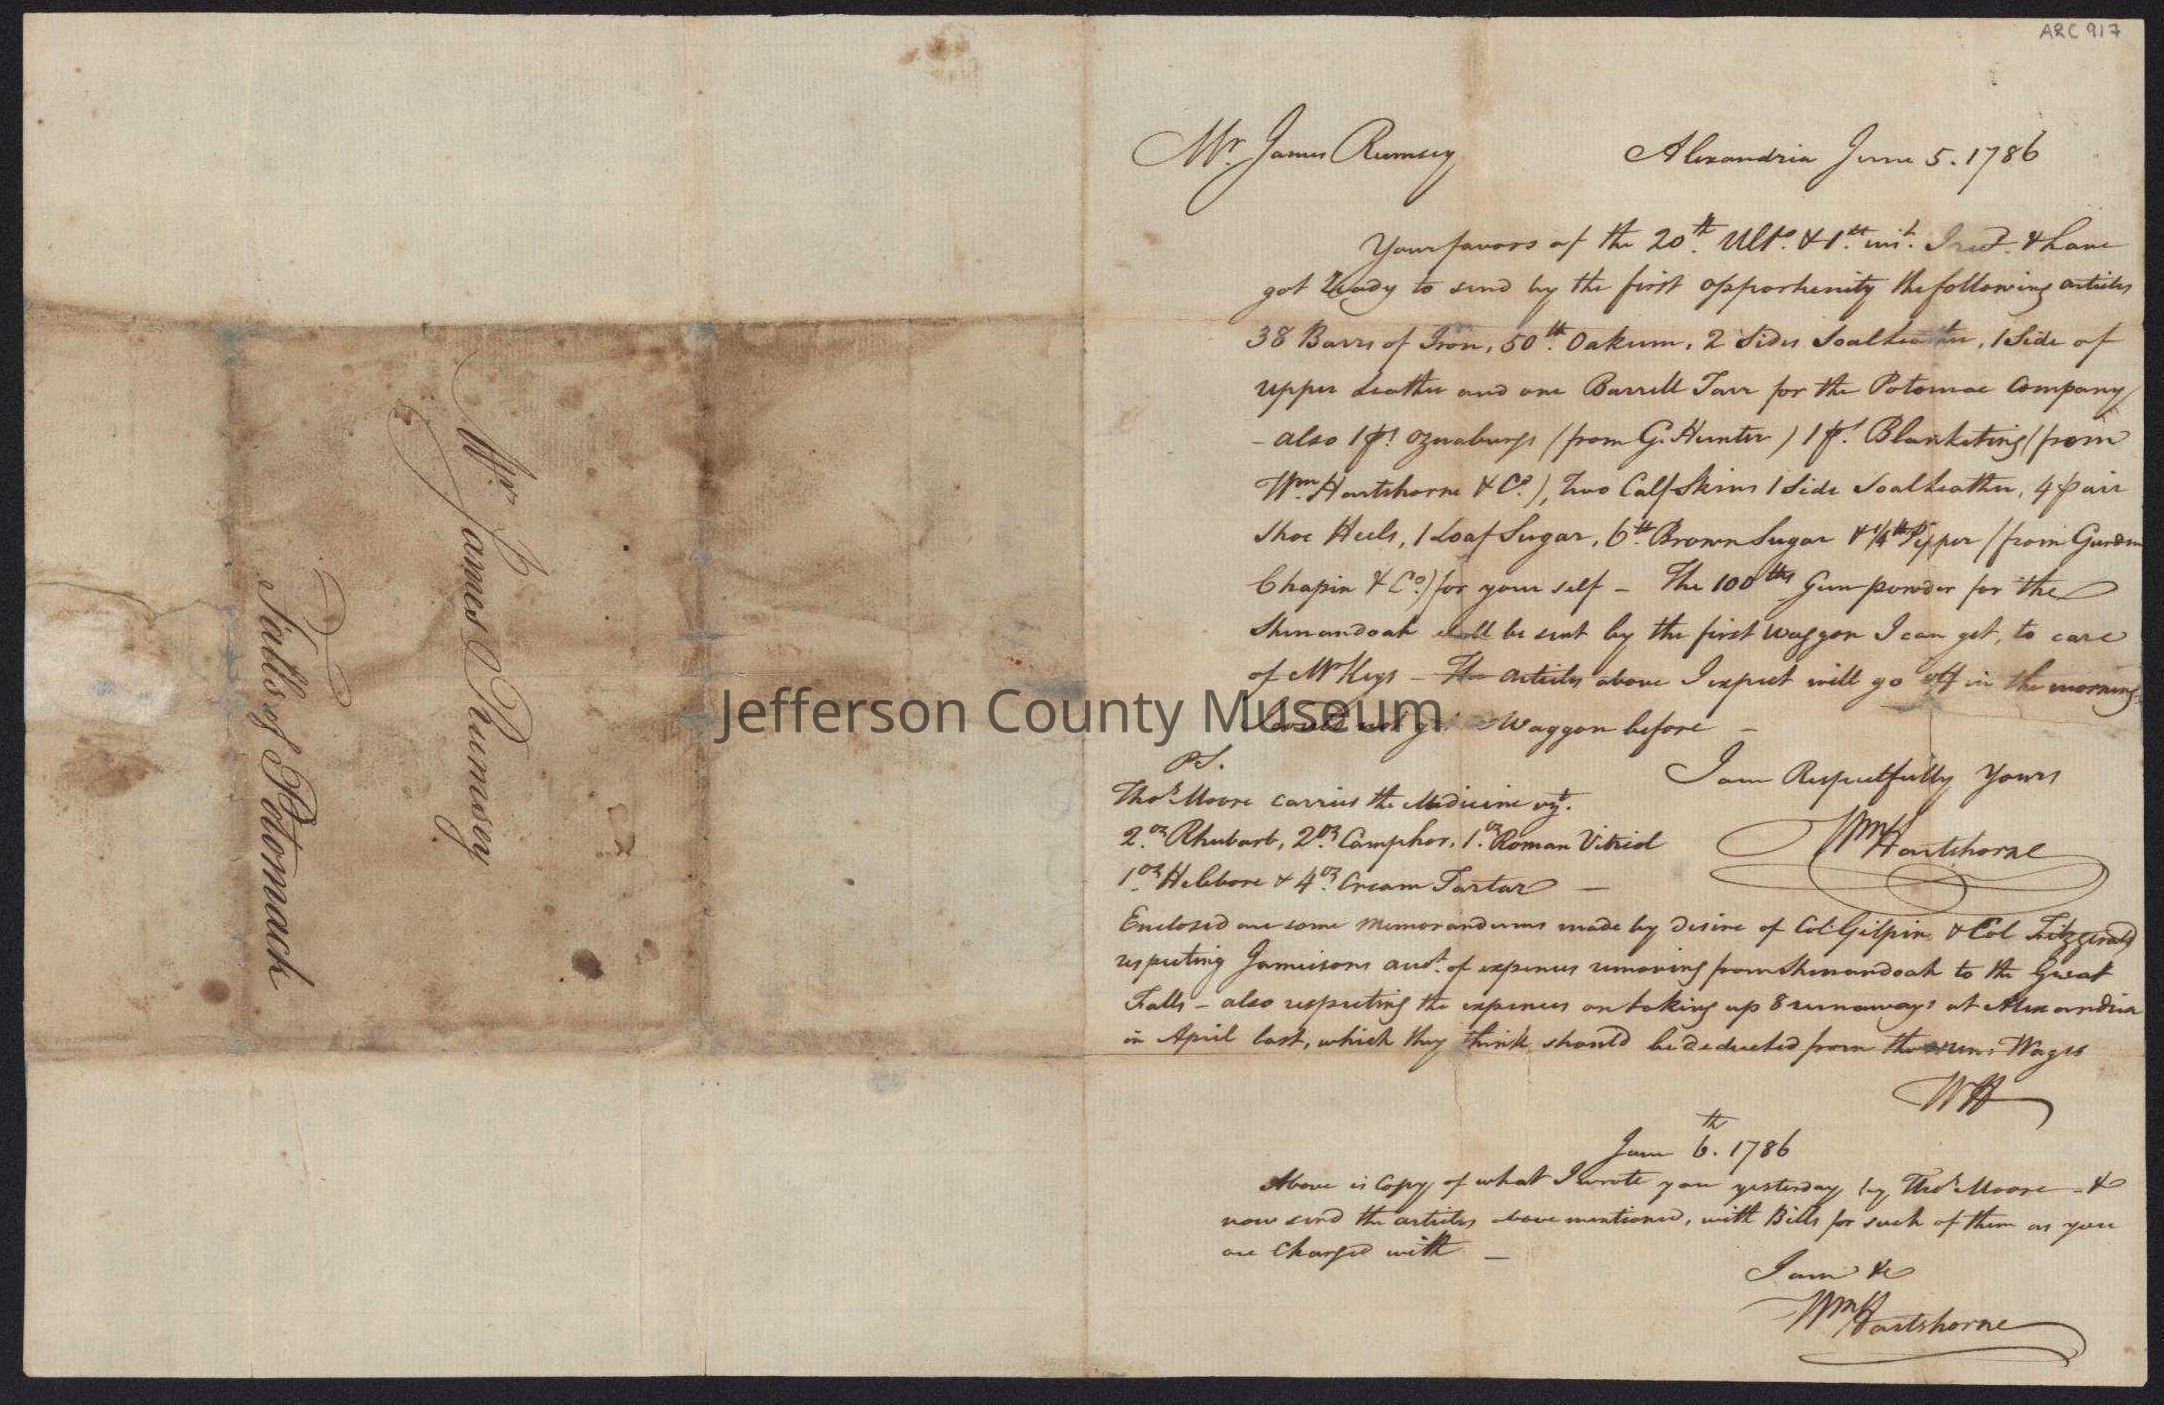 ARC 917
Mr. James Rumsey
Alexandria June 5. 1786
Your favors of the 20th. Ulto. & 1st. inst. I recd. & have
got ready to send by the first opportunity the following articles
38 Barrs of Iron, 50 lb. Oakum, 2 Sides Soal Leather, 1 Side of
upper Leather and one Barrell Tarr for the Potomac Company
- also 1 ps. oznaburgs (from G. Hunter) 1 ps. Blanketing (from
Wm. Hartshorne & Co.), Two Calf Skins 1 Side Soal Leather, 4 pair
Shoe Heels, 1 Loaf Sugar, 6 lb. Brown Sugar & 1/4 lb Pepper (from Gurdon
Chapin & Co.) for your self - The 100 lbs Gun powder for the
Shenandoah shall be sent by the first Waggon I can get, to care
of Mr Keys - The articles above I expect will go off in the morning
Could not get Waggon before -
I am Respectfully Yours
Wm Hartshorne
PS.
Thos. Moore carries the Medicine vizt.
2 oz. Rhubarb, 2 oz. Camphor, 1 oz. Roman Vitriol
1 oz. Helebore & 4 oz. Cream Tartar -
Enclosed are some memorandums made by desire of Col Gilpin & Col Fitzgerald
respecting Jameisons acct. of expences removing from Shenandoah to the Great
Falls - also respecting the expences on taking up 8 runaways at Alexandria
in April last, which they think should be deducted from the mens Wages
WH
June 6th. 1786
Above is Copy of what I wrote you yesterday by Thos. Moore - &
now send the articles above mentioned, with Bills for such of them as you
are Charged with -
I am &c
Wm Hartshorne
Mr. James Rumsey
Falls of Potomack
Jefferson County Museum